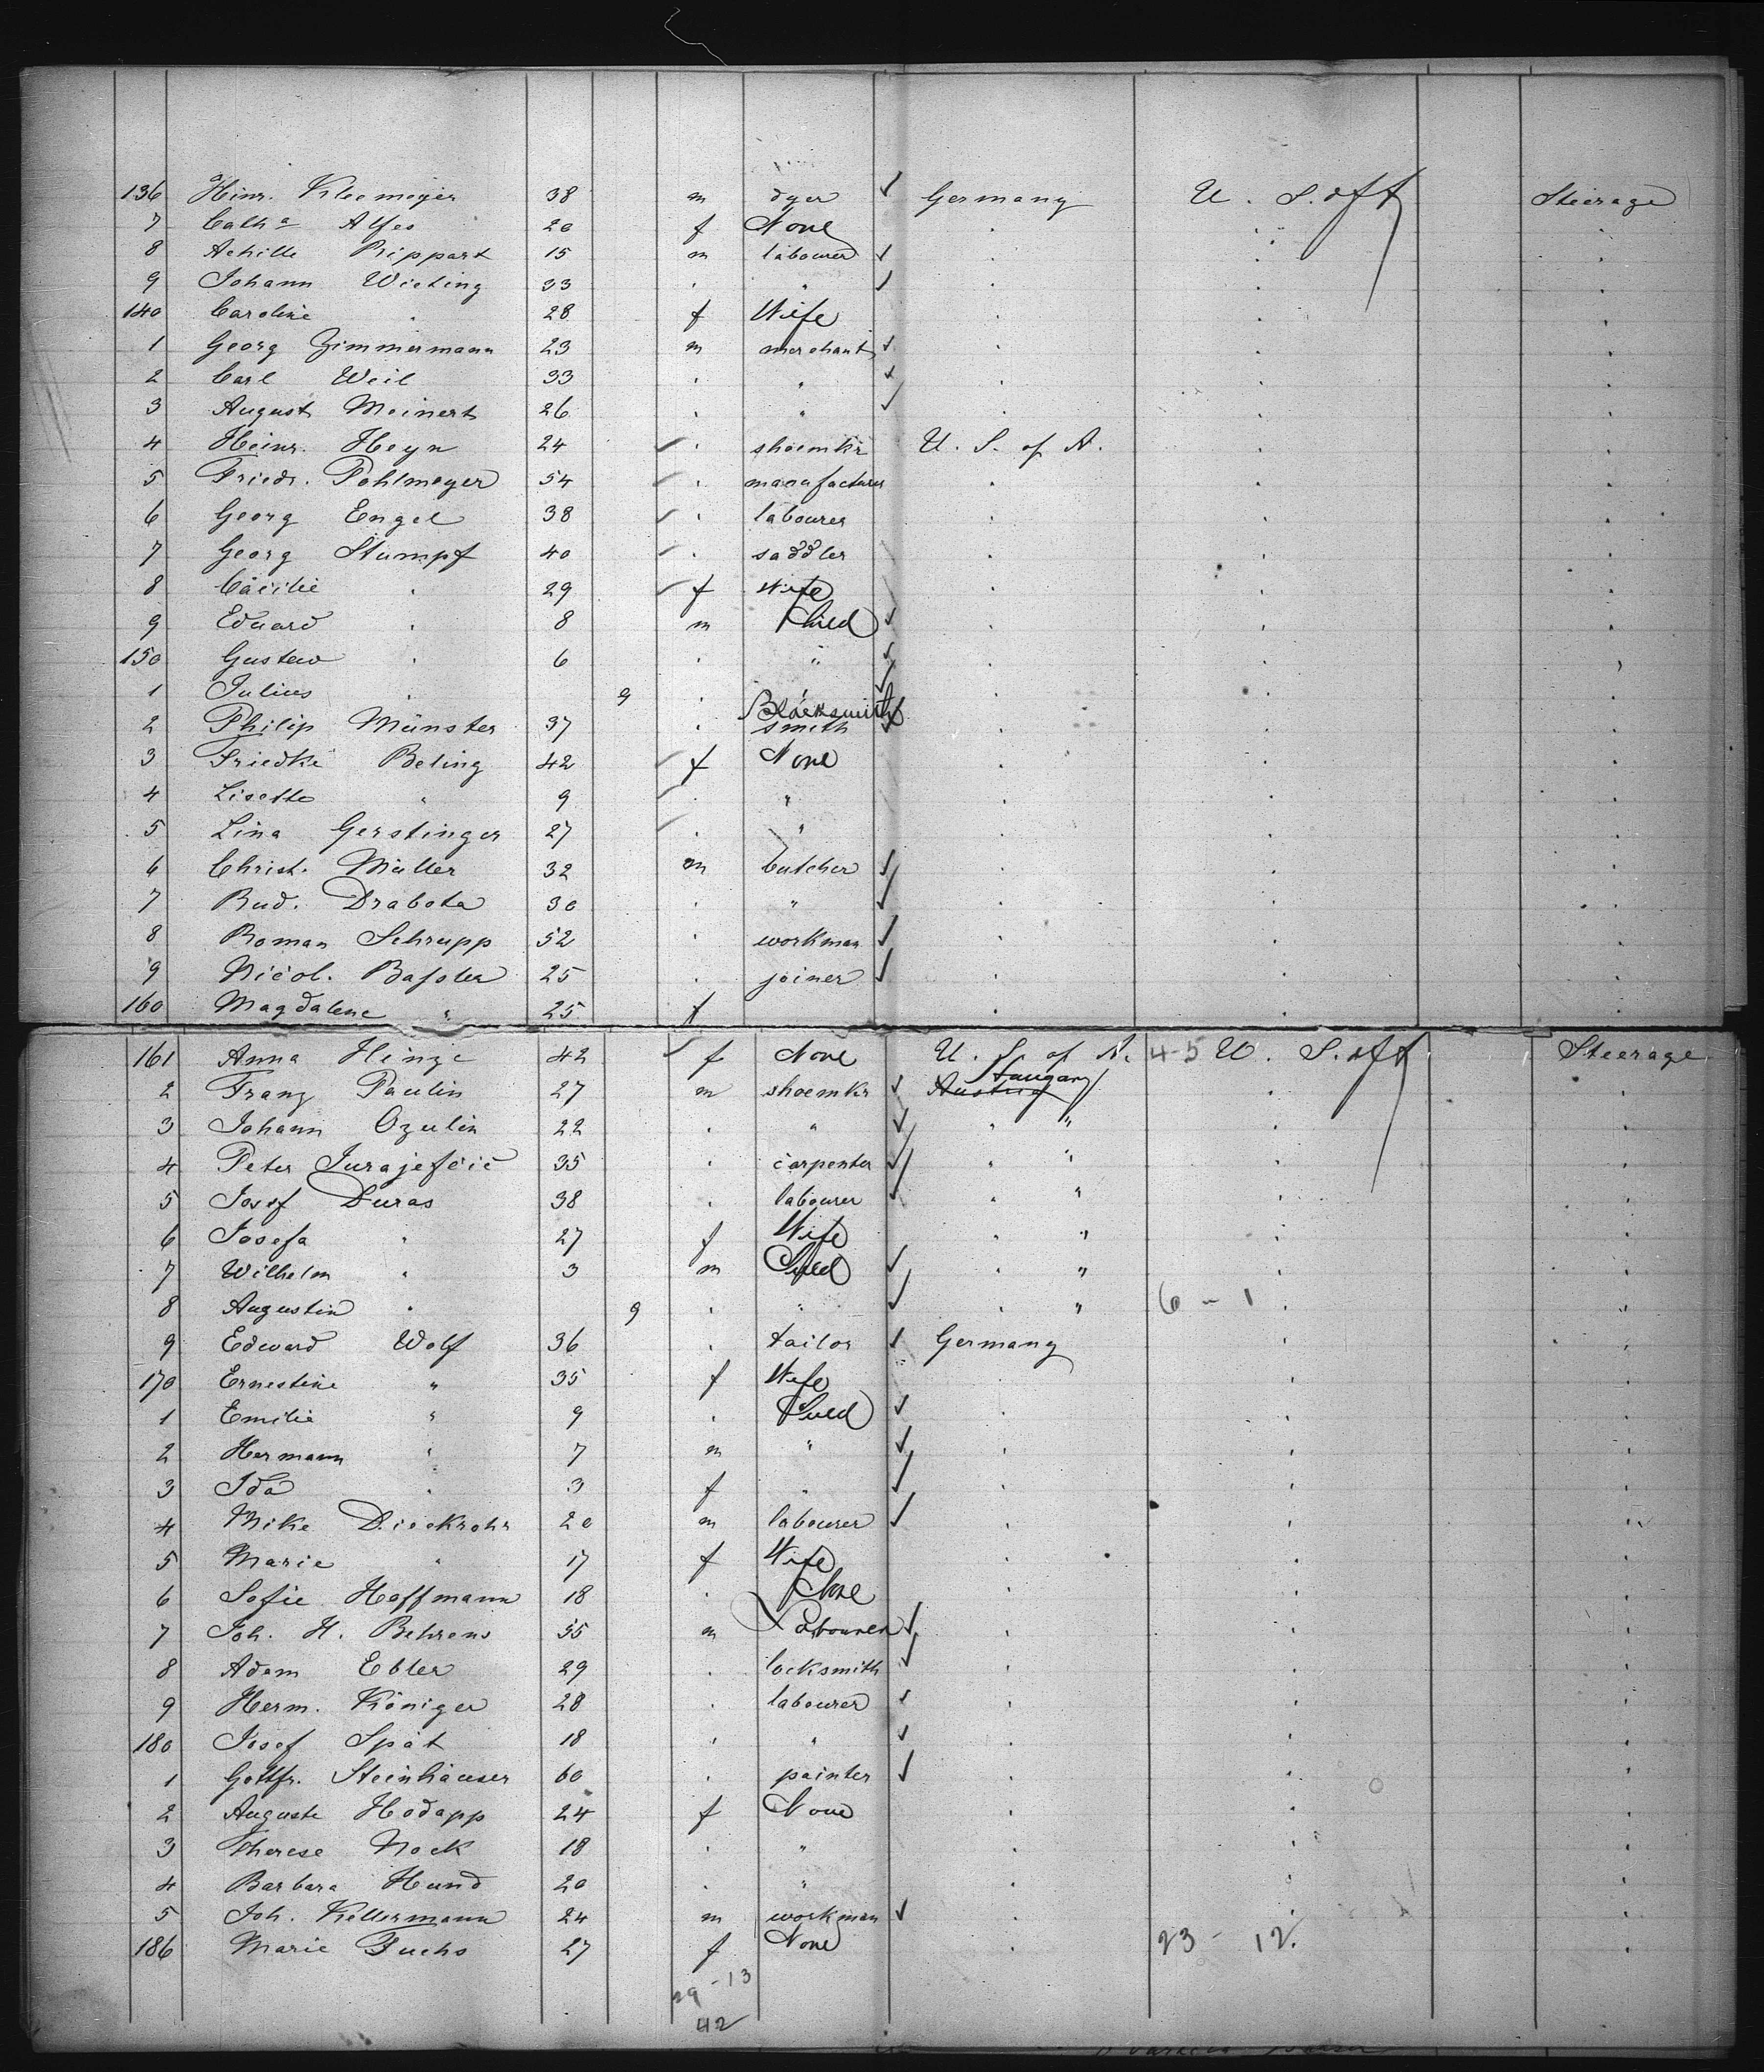 136 Heinr. Kleemeyer 38 m dyer ✓ Germany U. S. of A Steerage
7 Cath^a Alfes 20 f None . . .
8 Achille Rippart 15 m labourer ✓ . . .
9 Johann Wieting 33 . " ✓ . . .
140 Caroline . 28 f Wife . . .
1 Georg Zimmermann 23 m merchant ✓ . . .
2 Carl Weil 33 . " ✓ . . .
3 August Meinert 26 . " ✓ . . .
4 Heinr. Heyn 24 . shoemkr U. S. of A. . .
5 Friedr. Pohlmeyer 54 . manufacturer . . .
6 Georg Engel 38 . labourer . . .
7 Georg Stumpf 40 . saddler . . .
8 Cäcilie . 29 f Wife . . .
9 Eduard . 8 m Child ✓ . . .
150 Gustav . 6 . " ✓ . . .
1 Julius . 9 . ✓ . . .
Blacksmith
2 Philip Münster 37 . smith ✓ . . .
3 Friedke Beling 42 f None . . .
4 Lisette " 9 . " . . .
5 Lina Gerstinger 27 . " . . .
6 Christ. Müller 32 m butcher ✓ . . .
7 Rud. Drabota 30 . " ✓ . . .
8 Roman Schrupp 52 . workman ✓ . . .
9 Nicol. Baßler 25 . joiner ✓ . . .
160 Magdalene " 25 f . . .
161 Anna Hinze 42 f None U. S. of A. 4-5 U. S. of A Steerage
Hungary
2 Franz Paulin 27 m shoemkr ✓ Austria . .
3 Johann Ozulin 22 . " ✓ . " . .
4 Peter Jurajefcic 35 . carpenter ✓ . " . .
5 Josef Duras 38 . labourer ✓ . " . .
6 Josefa . 27 f Wife . " . .
7 Wilhelm . 3 m Child ✓ . " . .
8 Augustin . 9 . " ✓ . " 6 - 1 . .
9 Edward Wolf 36 . tailor ✓ Germany . .
170 Ernestine " 35 f Wife . . .
1 Emilie " 9 . Child ✓ . . .
2 Hermann " 7 m " ✓ . . .
3 Ida . 3 f . ✓ . . .
4 Mike Dieckrohr 20 m labourer ✓ . . .
5 Marie " 17 f Wife . . .
6 Sofie Hoffmann 18 . None . . .
7 Joh. H. Behrens 55 m Labourer ✓ . . .
8 Adam Ebler 29 . locksmith ✓ . . .
9 Herm. Königer 28 . labourer ✓ . . .
180 Josef Spät 18 . " ✓ . . .
1 Gottfr. Steinhäuser 60 . painter ✓ . . .
2 Auguste Hodapp 24 f None . . .
3 Therese Nock 18 . " . .
4 Barbara Hund 20 . " . . .
5 Joh. Kellermann 24 m workman ✓ . . .
186 Marie Fuchs 27 f None . 23 - 12. .
29 - 13
42